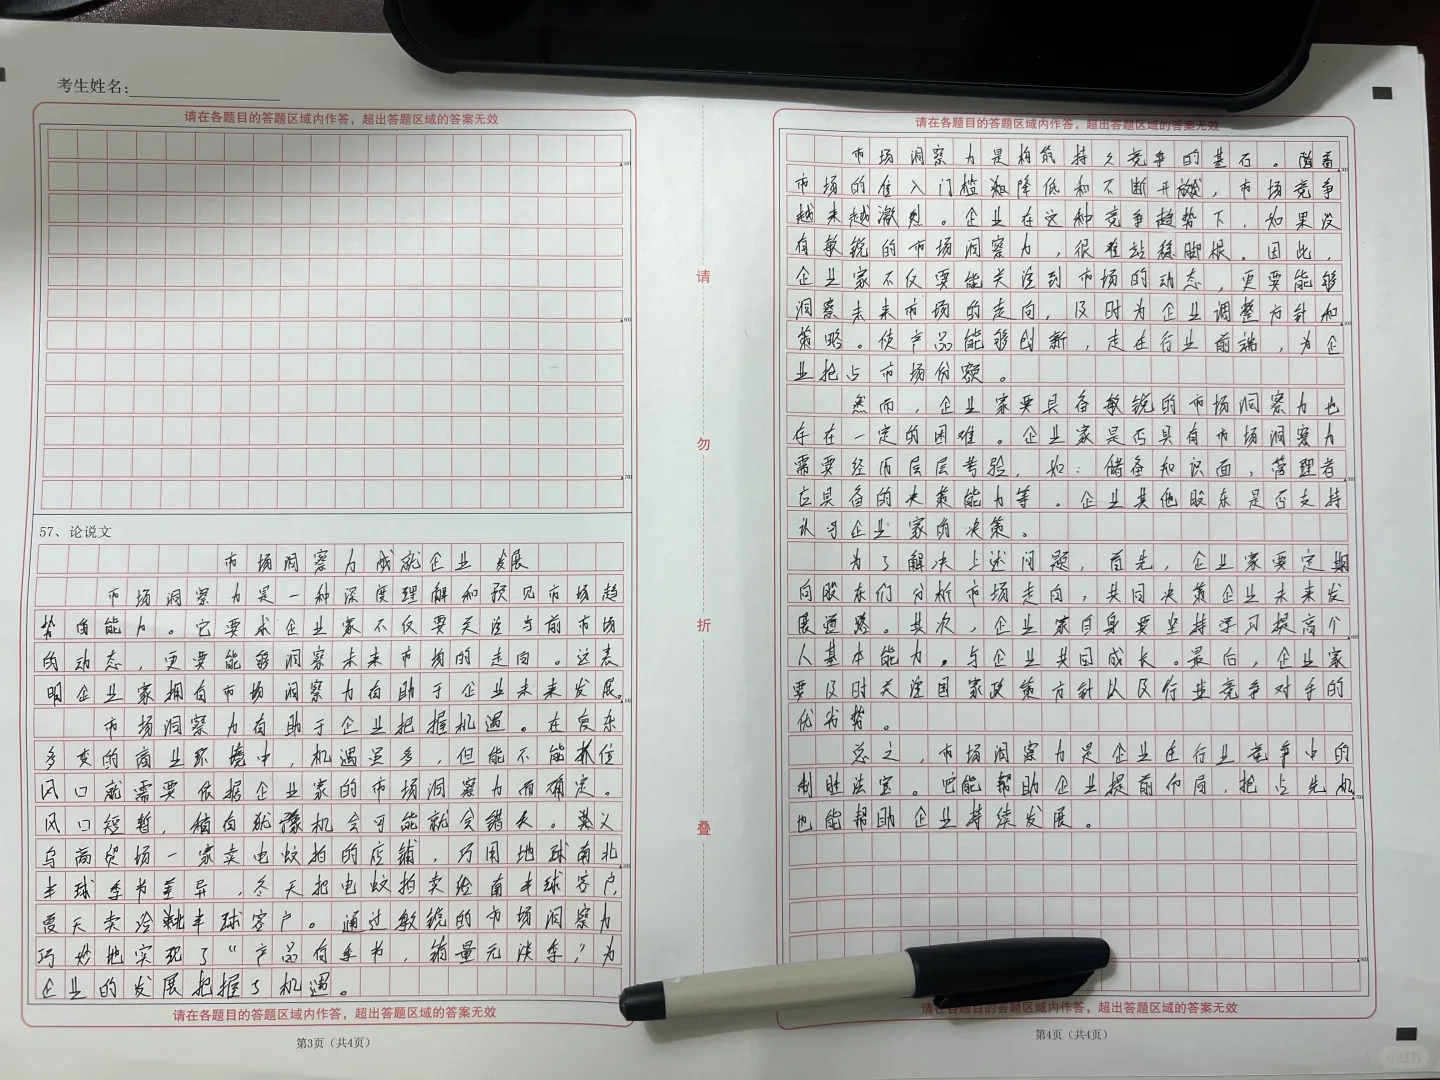 考生姓名:
请在各题目的答题区域内作答，超出答题区域的答案无效
57、论说文
市场洞察力成就企业发展
市场洞察力是一种深度理解和预见市场趋
势的能力。它要求企业家不仅要关注当前市场
的动态，更要能够洞察未来市场的走向。这表
明企业家拥有市场洞察力有助于企业未来发展。
市场洞察力有助于企业把握机遇。在复杂
多变的商业环境中，机遇虽多，但能不能抓住
风口就需要依据企业家的市场洞察力而确定。
风口短暂，稍有犹豫机会可能就会错失。某义
乌商贸场一家卖电蚊拍的店铺，巧用地球南北
半球季节差异，冬天把电蚊拍卖给南半球客户，
夏天卖给北半球客户。通过敏锐的市场洞察力
巧妙地实现了“产品有季节，销量无淡季，”为
企业的发展把握了机遇。
请在各题目的答题区域内作答，超出答题区域的答案无效
第3页（共4页）
请
勿
折
叠
请在各题目的答题区域内作答，超出答题区域的答案无效
市场洞察力是构筑持久竞争的基石。随着
市场的准入门槛降低和不断开放，市场竞争
越来越激烈。企业在这种竞争趋势下，如果没
有敏锐的市场洞察力，很难站稳脚根。因此，
企业家不仅要能关注到市场的动态，更要能够
洞察未来市场的走向，及时为企业调整方针和
策略。使产品能够创新，走在行业前端，为企
业抢占市场份额。
然而，企业家要具备敏锐的市场洞察力也
存在一定的困难。企业家是否具有市场洞察力
需要经历层层考验，如：储备知识面，管理者
应具备的决策能力等。企业其他股东是否支持
认可企业家的决策。
为了解决上述问题，首先，企业家要定期
向股东们分析市场走向，共同决策企业未来发
展道路。其次，企业家自身要坚持学习提高个
人基本能力。与企业共同成长。最后，企业家
要及时关注国家政策方针以及行业竞争对手的
优劣势。
总之，市场洞察力是企业在行业竞争中的
制胜法宝。它能帮助企业提前布局，抢占先机
也能帮助企业持续发展。
请在各题目的答题区域内作答，超出答题区域的答案无效
第4页（共4页）